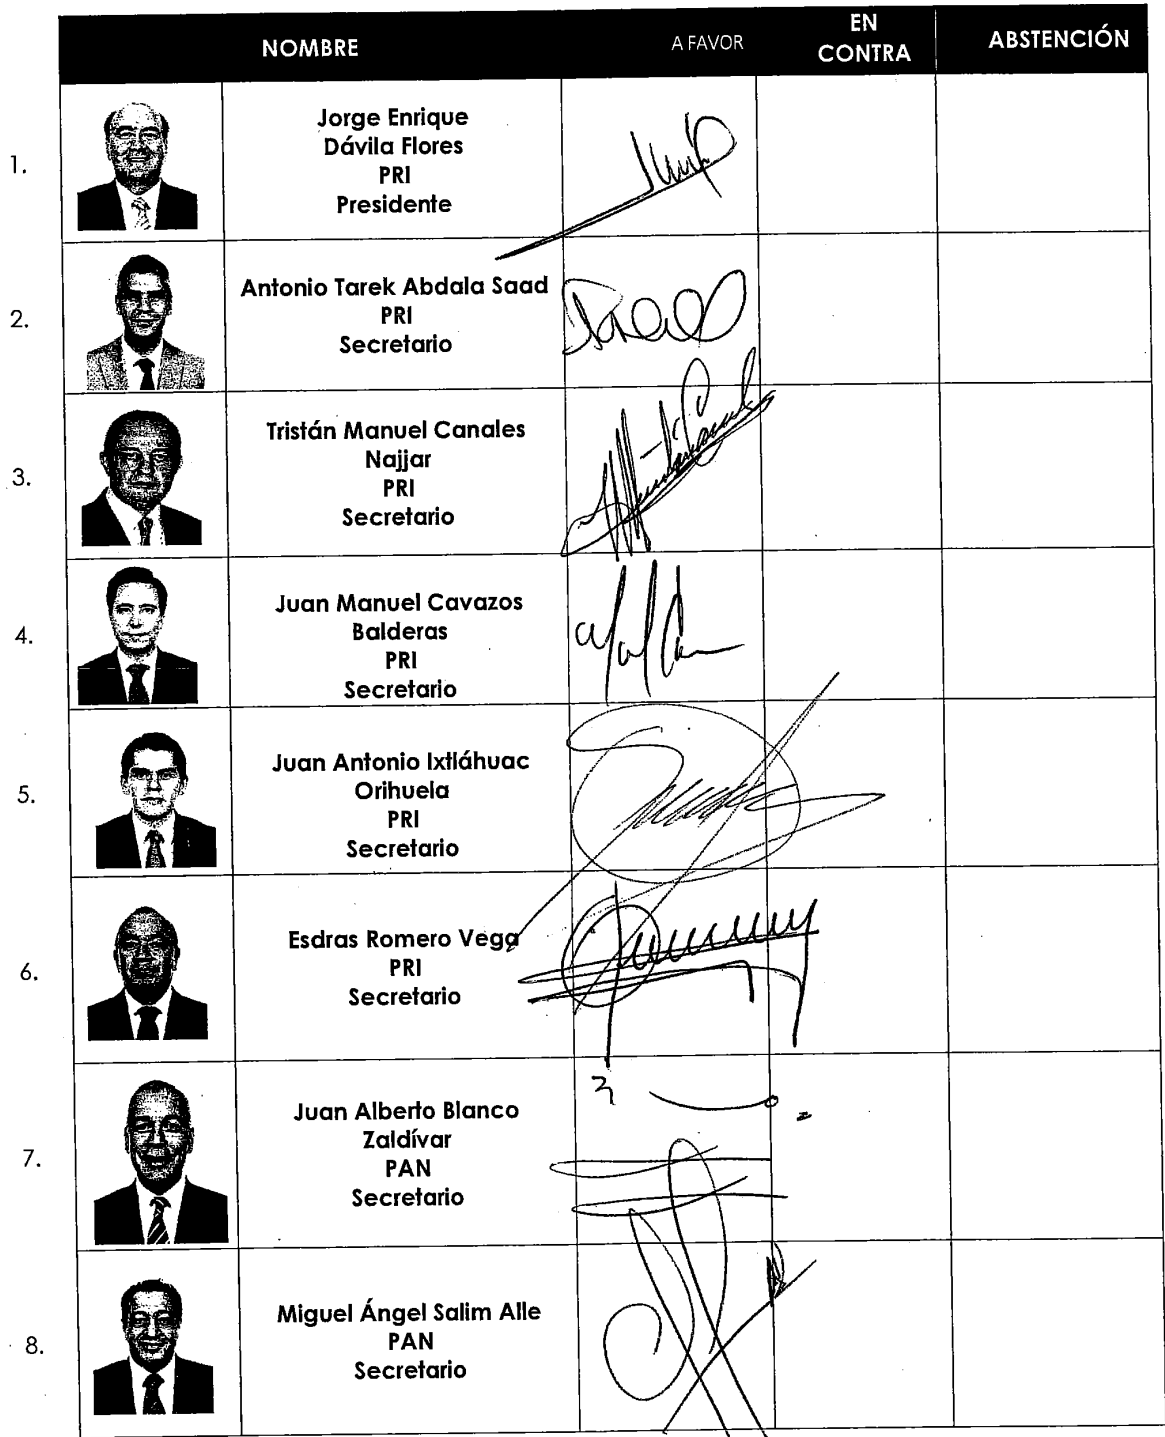 NOMBRE A FAVOR EN CONTRA ABSTENCIÓN
1.
Jorge Enrique
Dávila Flores
PRI
Presidente
2.
Antonio Tarek Abdala Saad
PRI
Secretario
3.
Tristán Manuel Canales
Najjar
PRI
Secretario
4.
Juan Manuel Cavazos
Balderas
PRI
Secretario
5.
Juan Antonio Ixtláhuac
Orihuela
PRI
Secretario
6.
Esdras Romero Vega
PRI
Secretario
7.
Juan Alberto Blanco
Zaldívar
PAN
Secretario
8.
Miguel Ángel Salim Alle
PAN
Secretario